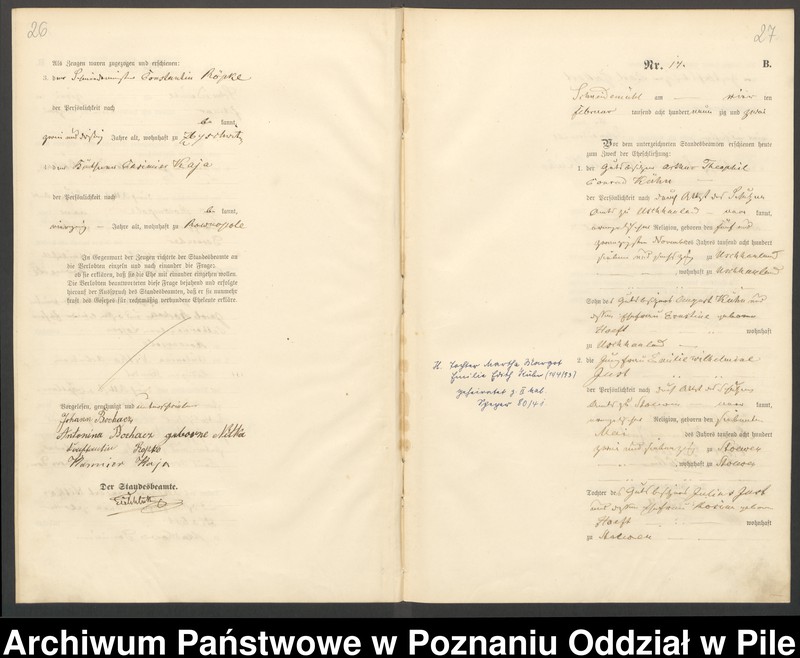 26
Als Zeugen waren zugezogen und erschienen:
3. der Schmiedemeister Constantin Röpke
der Persönlichkeit nach
be kannt,
zwei und dreißig Jahre alt, wohnhaft zu
4. der Casimier Kaja
der Persönlichkeit nach
be kannt,
Jahre alt, wohnhaft zu Rownopole
In Gegenwart der Zeugen richtete der Standesbeamte an
die Verlobten einzeln und nach einander die Frage:
ob sie erklären, daß sie die Ehe mit einander eingehen wollen.
Die Verlobten beantworteten diese Frage bejahend und erfolgte
hierauf der Ausspruch des Standesbeamten, daß er sie nunmehr
kraft des Gesetzes für rechtmäßig verbundene Eheleute erkläre.
Vorgelesen, genehmigt und unterschrieben
Johann Bochacz
Antonina Bochacz geborne
Constantin Röpke
Kaja
Der Standesbeamte.
27
Nr. 14. B.
Schneidemühl am vier ten
Februar tausend acht hundert neun zig und zwei
Vor dem unterzeichneten Standesbeamten erschienen heute
zum Zweck der Eheschließung:
1. der Gutsbesitzer Arthur Theophil
Conrad Kühn
der Persönlichkeit nach durch Attest des Schulzen
Amts zu Uschhauland kannt,
evangelischer Religion, geboren den fünf und
zwanzigsten November des Jahres tausend acht hundert
sieben und sechszig zu Uschhauland
, wohnhaft zu Uschhauland
Sohn des Gutsbesitzers August Kühn und
dessen Ehefrau Ernstine geborene
Hoeft wohnhaft
zu Uschhauland
2. die Jungfrau Emilie Wilhelmine
Jesse
der Persönlichkeit nach durch Attest des Schulzen
Amts zu Stoewen kannt,
evangelischer Religion, geboren den siebenten
Mai des Jahres tausend acht hundert
zwei und siebenzig zu Stoewen
, wohnhaft zu Stoewen
Tochter des Gutsbesitzers Julius
und dessen Ehefrau Rosine geborene
Hoeft wohnhaft
zu Stoewen
H. Tochter Martha Margot
Emilie Edith Kühn
geheiratet z. II mal.
Speyer 80/40
Archiwum Państwowe w Poznaniu Oddział w Pile